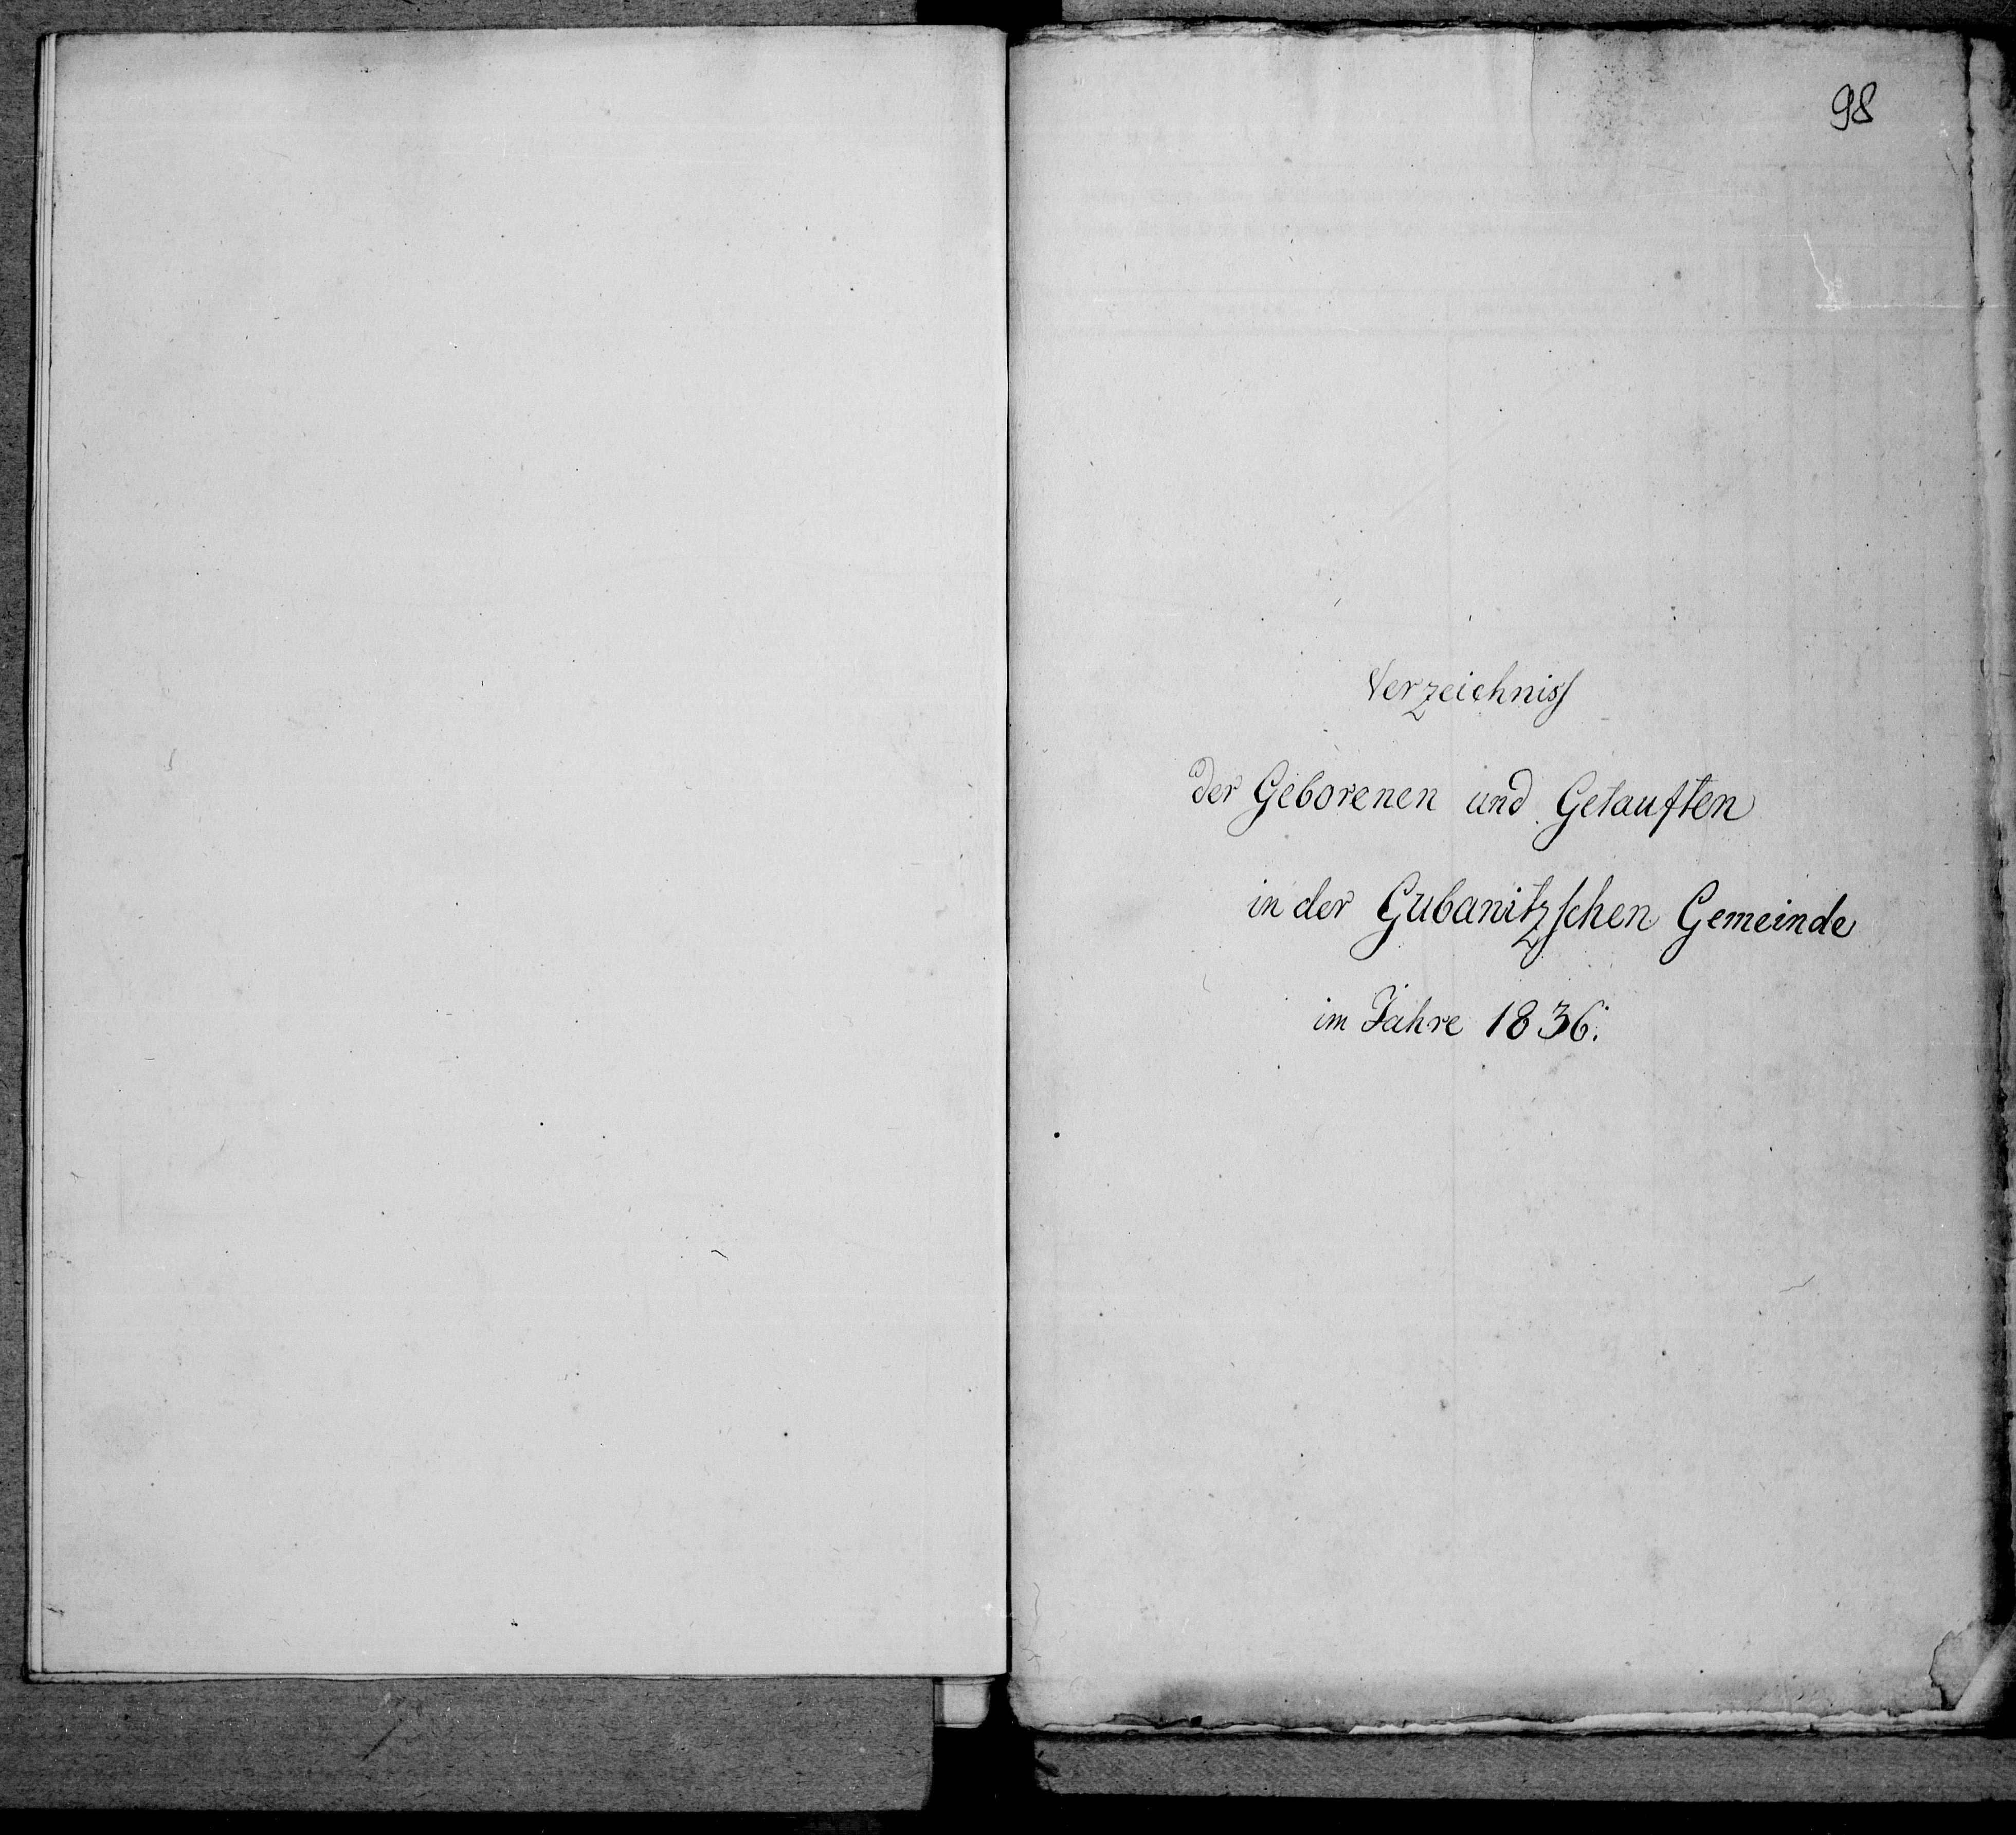 98
Verzeichniss
der Geborenen und Getauften
in der Gubanitzschen Gemeinde
im Jahre 1836.